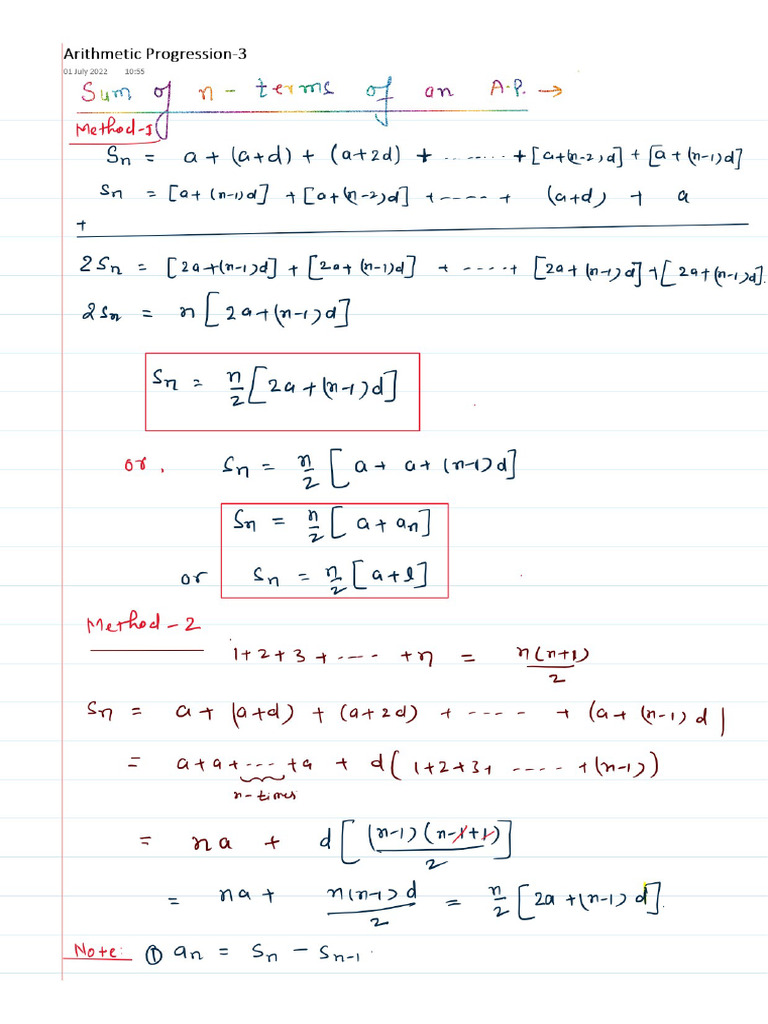 Arithmetic Progression-3
01 July 2022 10:55
Sum of n - terms of an A.P. →
Method-1
Sn = a + (a+d) + (a+2d) + ........ + [a+(n-2)d] + [a+(n-1)d]
Sn = [a+(n-1)d] + [a+(n-2)d] + ---- + (a+d) + a
+
2Sn = [2a+(n-1)d] + [2a+(n-1)d] + ----+ [2a+(n-1)d]+[2a+(n-1)d].
2Sn = n[2a+(n-1)d]
Sn = n/2[2a+(n-1)d]
or, Sn = n/2[a+ a+(n-1)d]
Sn = n/2[a+an]
or Sn = n/2[a+l]
Method-2
1+2+3+---- +n = n(n+1)/2
Sn = a+(a+d)+(a+2d) + ---- + (a+(n-1)d)
= a+a+ --- +a + d(1+2+3+ ----- +(n-1))
n-times
= na + d[(n-1)(n-1+1)/2]
= na+ n(n-1)d/2 = n/2[2a+(n-1)d].
Note: ① an = Sn - Sn-1.